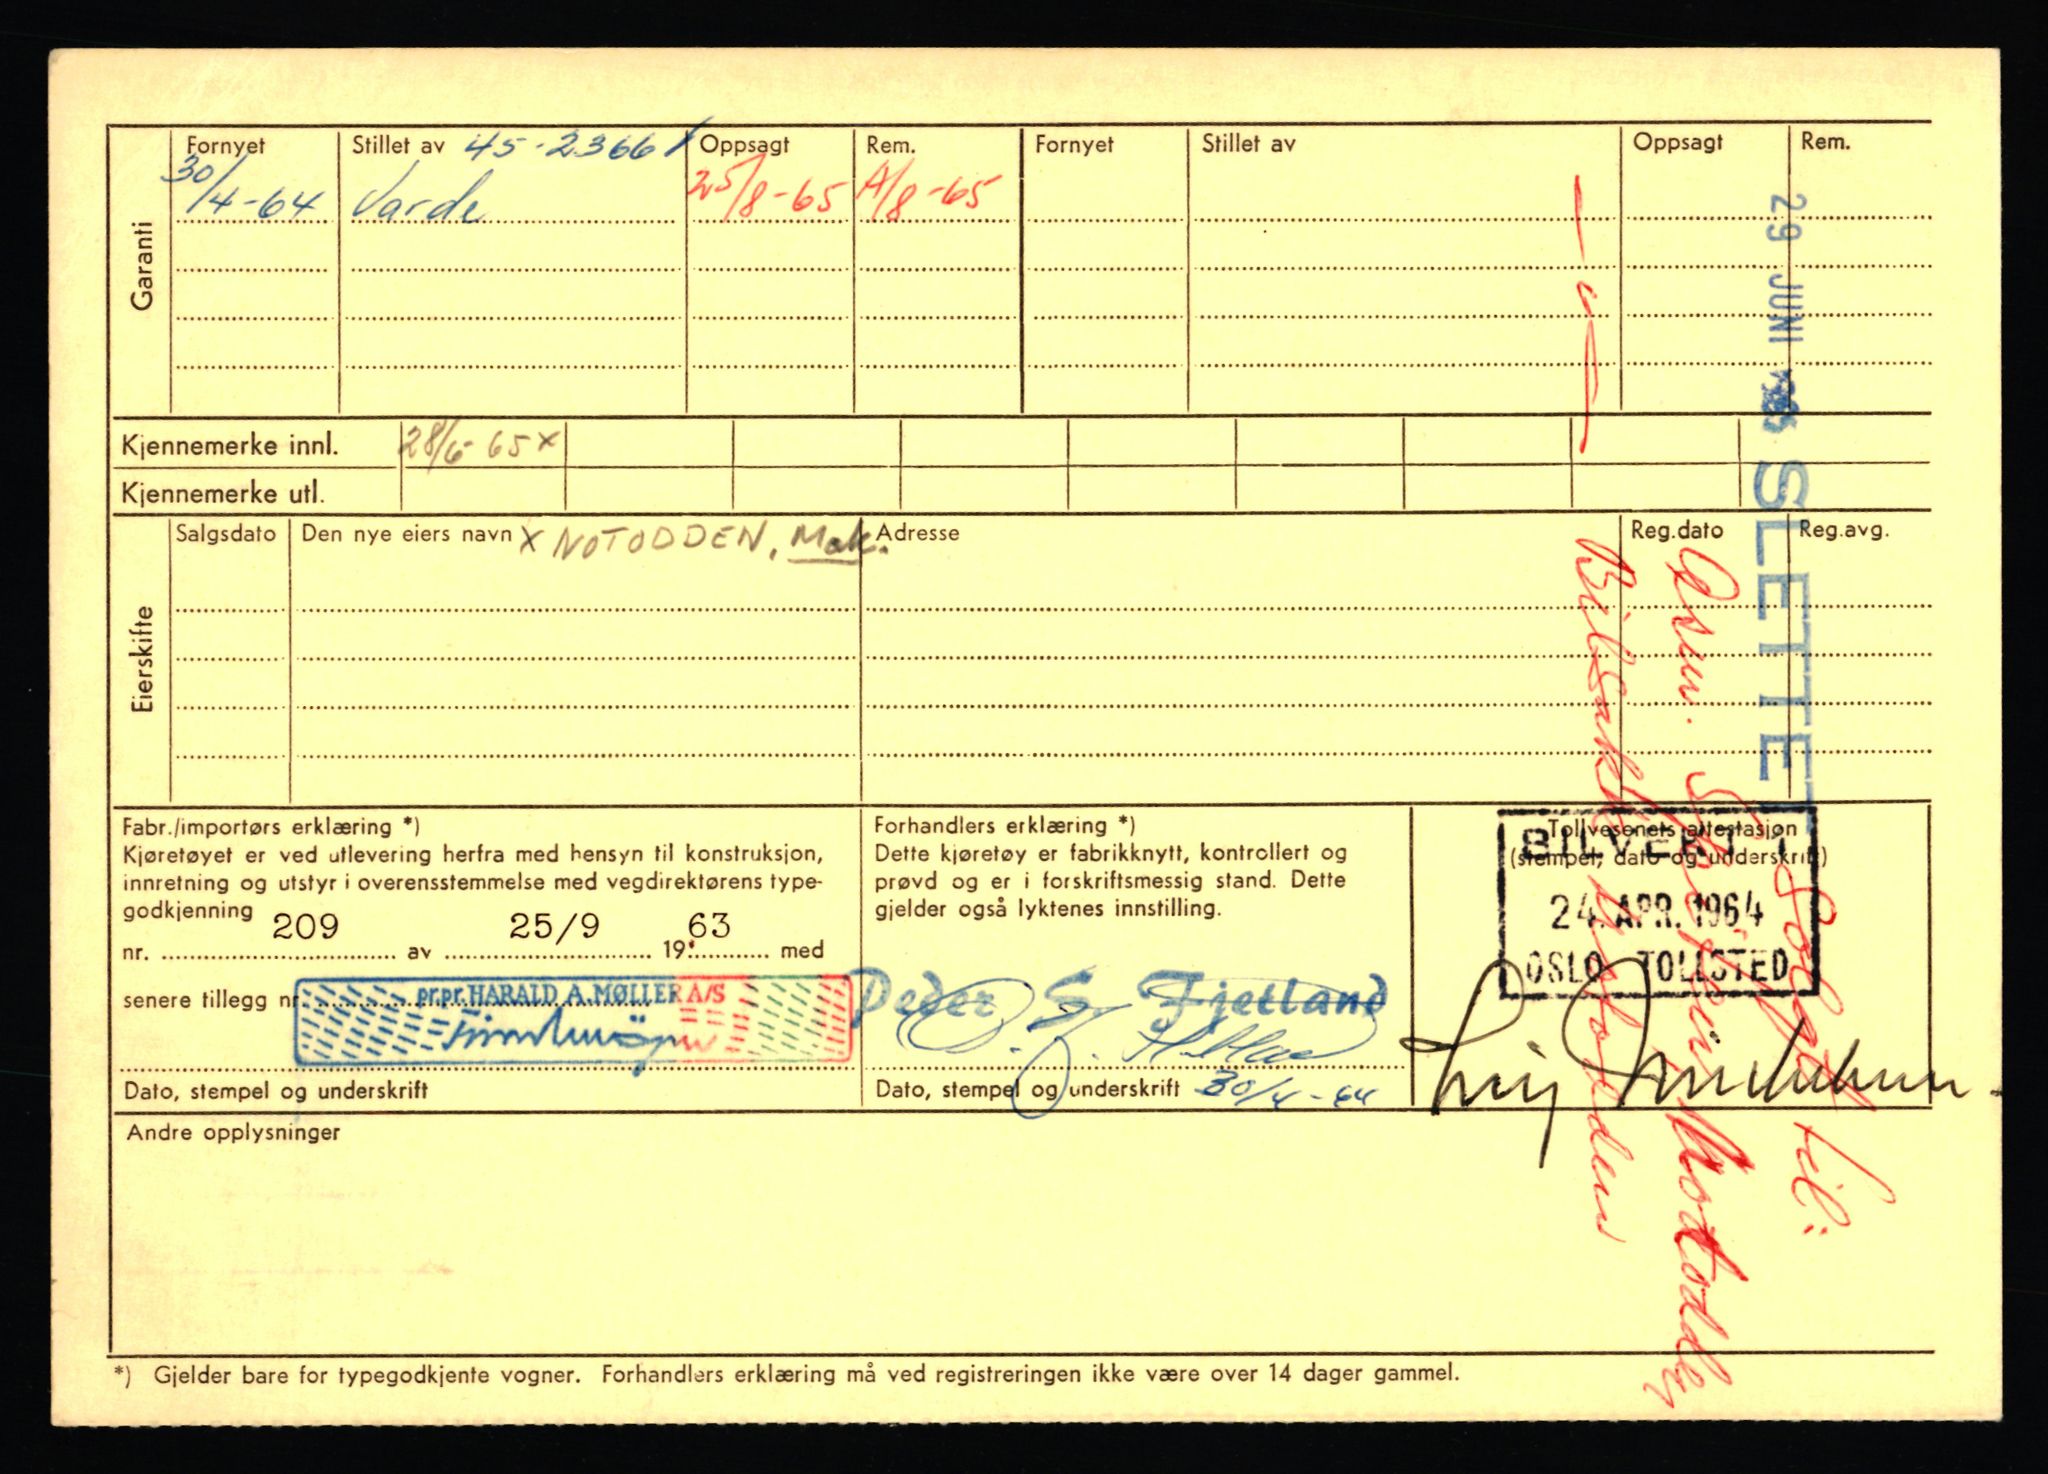 Garanti
Fornyet
Stillet av 45-23661
Oppsagt
Rem.
Fornyet
Stillet av
Oppsagt
Rem.
30/4-64
Varde
25/8-65
A/8-65
Kjennemerke innl. 28/6-65 x
Kjennemerke utl.
Eierskifte
Salgsdato
Den nye eiers navn x NOTODDEN, Mak.
Adresse
Reg.dato
Reg.avg.
29 JUNI
SLETTET
Solgt til:
Notodden
Notodden
Fabr./importørs erklæring *)
Kjøretøyet er ved utlevering herfra med hensyn til konstruksjon,
innretning og utstyr i overensstemmelse med vegdirektørens type-
godkjenning
nr. 209 av 25/9 19 63 med
senere tillegg nr.
pr.pr. HARALD A. MØLLER A/S
Dato, stempel og underskrift
Forhandlers erklæring *)
Dette kjøretøy er fabrikknytt, kontrollert og
prøvd og er i forskriftsmessig stand. Dette
gjelder også lyktenes innstilling.
Peder S. Fjetland
Dato, stempel og underskrift 30/4-64
Tollvesenets attestasjon
(stempel, dato og underskrift)
BILVERT
24. APR. 1964
OSLO TOLLSTED
Andre opplysninger
*) Gjelder bare for typegodkjente vogner. Forhandlers erklæring må ved registreringen ikke være over 14 dager gammel.